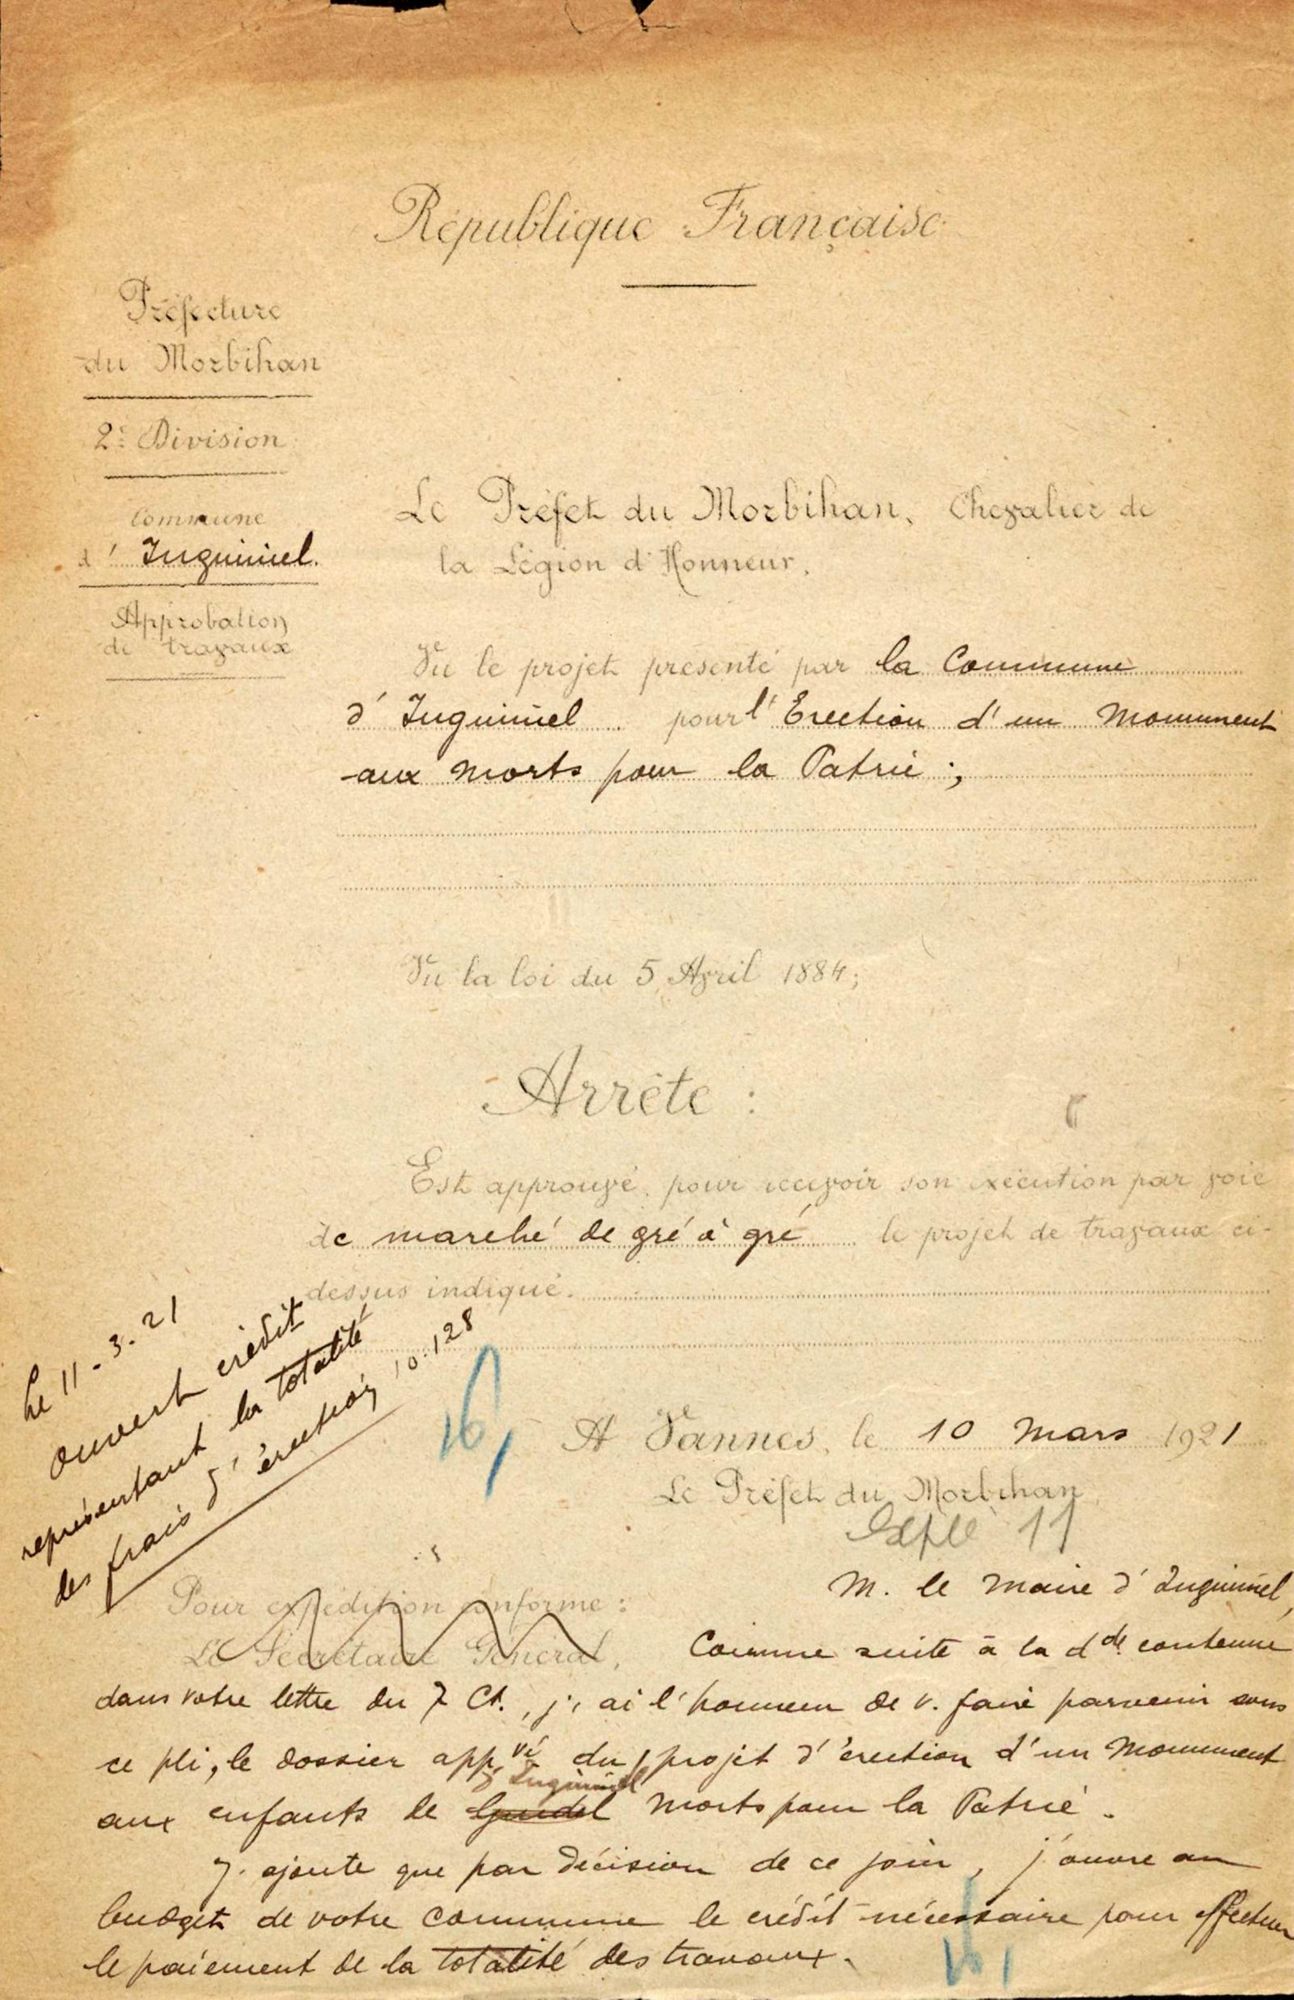 République Française
Préfecture
du Morbihan
2e Division
Commune
d'Inguiniel.
Approbation
de travaux
Le Préfet du Morbihan, Chevalier de
la Légion d'Honneur,
Vu le projet présenté par la Commune
d'Inguiniel pour l'Erection d'un Monument
aux morts pour la Patrie ;
Vu la loi du 5 Avril 1884;
Arrête :
Est approuvé, pour recevoir son exécution par voie
de marché de gré à gré le projet de travaux ci-
dessus indiqué.
Le 11-3-21
ouvert crédit
représentant la totalité
des frais d'érection 10.128
16
A Vannes, le 10 Mars 1921
Le Préfet du Morbihan,
Expé 11
Pour expédition conforme :
Le Secrétaire Général,
M. le Maire d'Inguiniel,
Comme suite à la dde contenue
dans votre lettre du 7 Ct., j'ai l'honneur de v. faire parvenir sous
ce pli, le dossier appvé du projet d'érection d'un Monument
d'Inguiniel
aux enfants de Morts pour la Patrie.
J'ajoute que par décision de ce jour, j'ouvre au
budget de votre commune le crédit nécessaire pour effectuer
le paiement de la totalité des travaux.
16